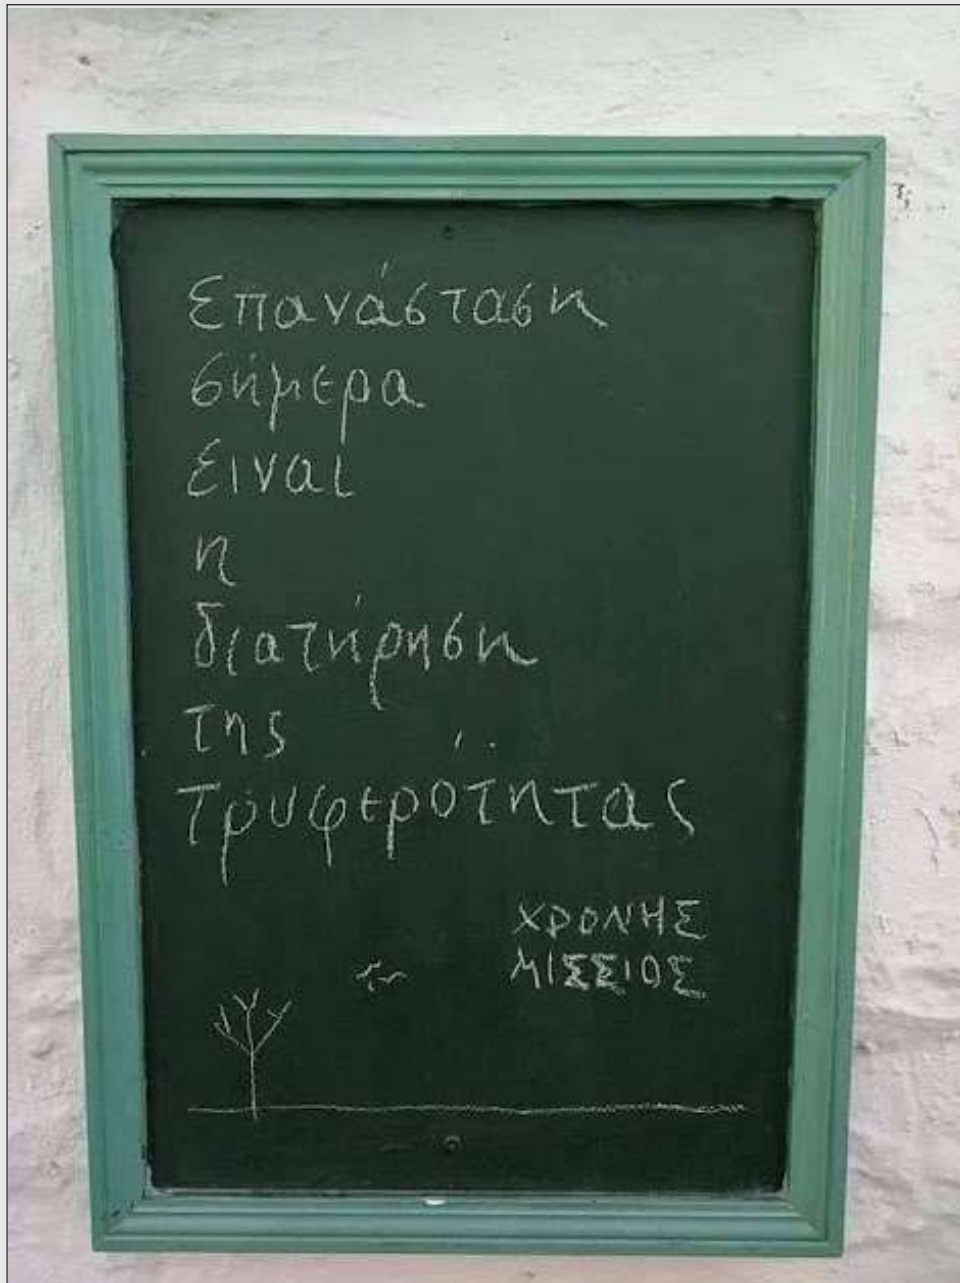 Επανάσταση
σήμερα
ειναι
η
διατήρηση
της
τρυφερότητας
ΧΡΟΝΗΣ
ΜΙΣΣΙΟΣ